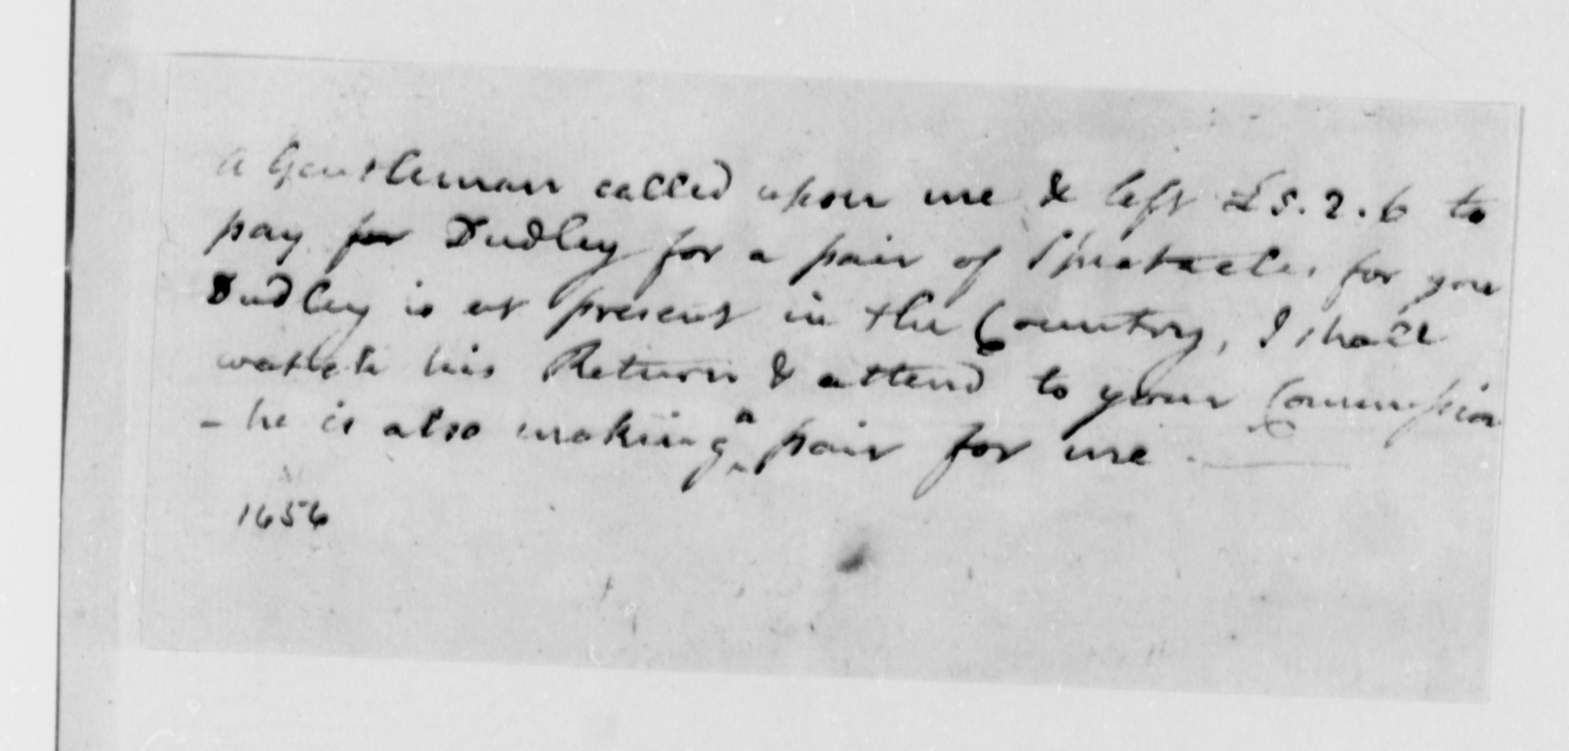 A Gentleman called upon me & left £5.2.6 to
pay for Dudley for a pair of Spectacles for you
Dudley is at present in the Country, I shall
watch his Return & attend to your Commission
- he is also making a pair for me.
1656